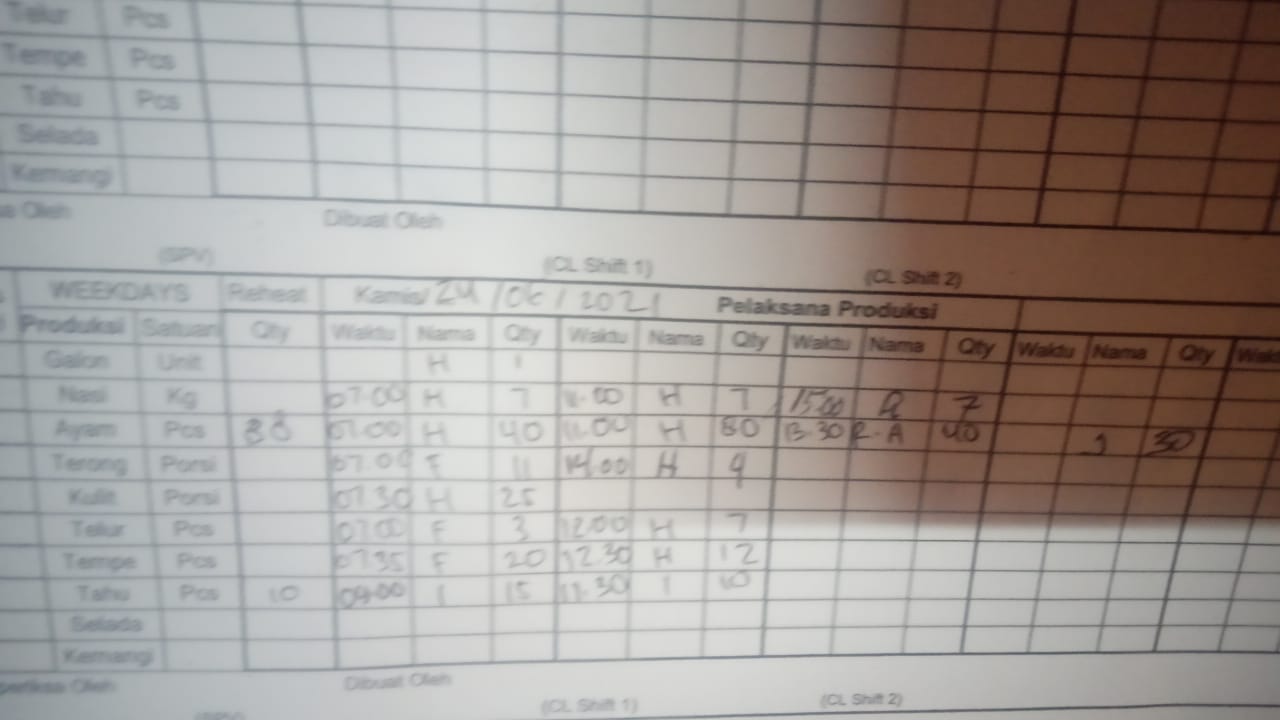 Telur Pcs
Tempe Pcs
Tahu Pcs
Selada
Kemangi
Oleh Dibuat Oleh
(SPV) (CL Shift 1) (CL Shift 2)
WEEKDAYS Reheat Kamis/ 24/06/2021 Pelaksana Produksi
Produksi Satuan Qty Waktu Nama Qty Waktu Nama Qty Waktu Nama Qty Waktu Nama Qty
Galon Unit H 1
Nasi Kg 07.00 H 7 11.00 H 7 15.00 7
Ayam Pcs 07.00 H 40 11.00 H 13.30 R.A 40 30
Terong Porsi 07.00 F 11 14.00 H 9
Kulit Porsi 07.30 H 25
Telur Pcs 07.00 F 3 12.00 H 7
Tempe Pcs 07.35 F 20 12.30 H 12
Tahu Pcs 10 09.00 I 15 11.30 I 10
Selada
Kemangi
Oleh Dibuat Oleh
(CL Shift 1) (CL Shift 2)